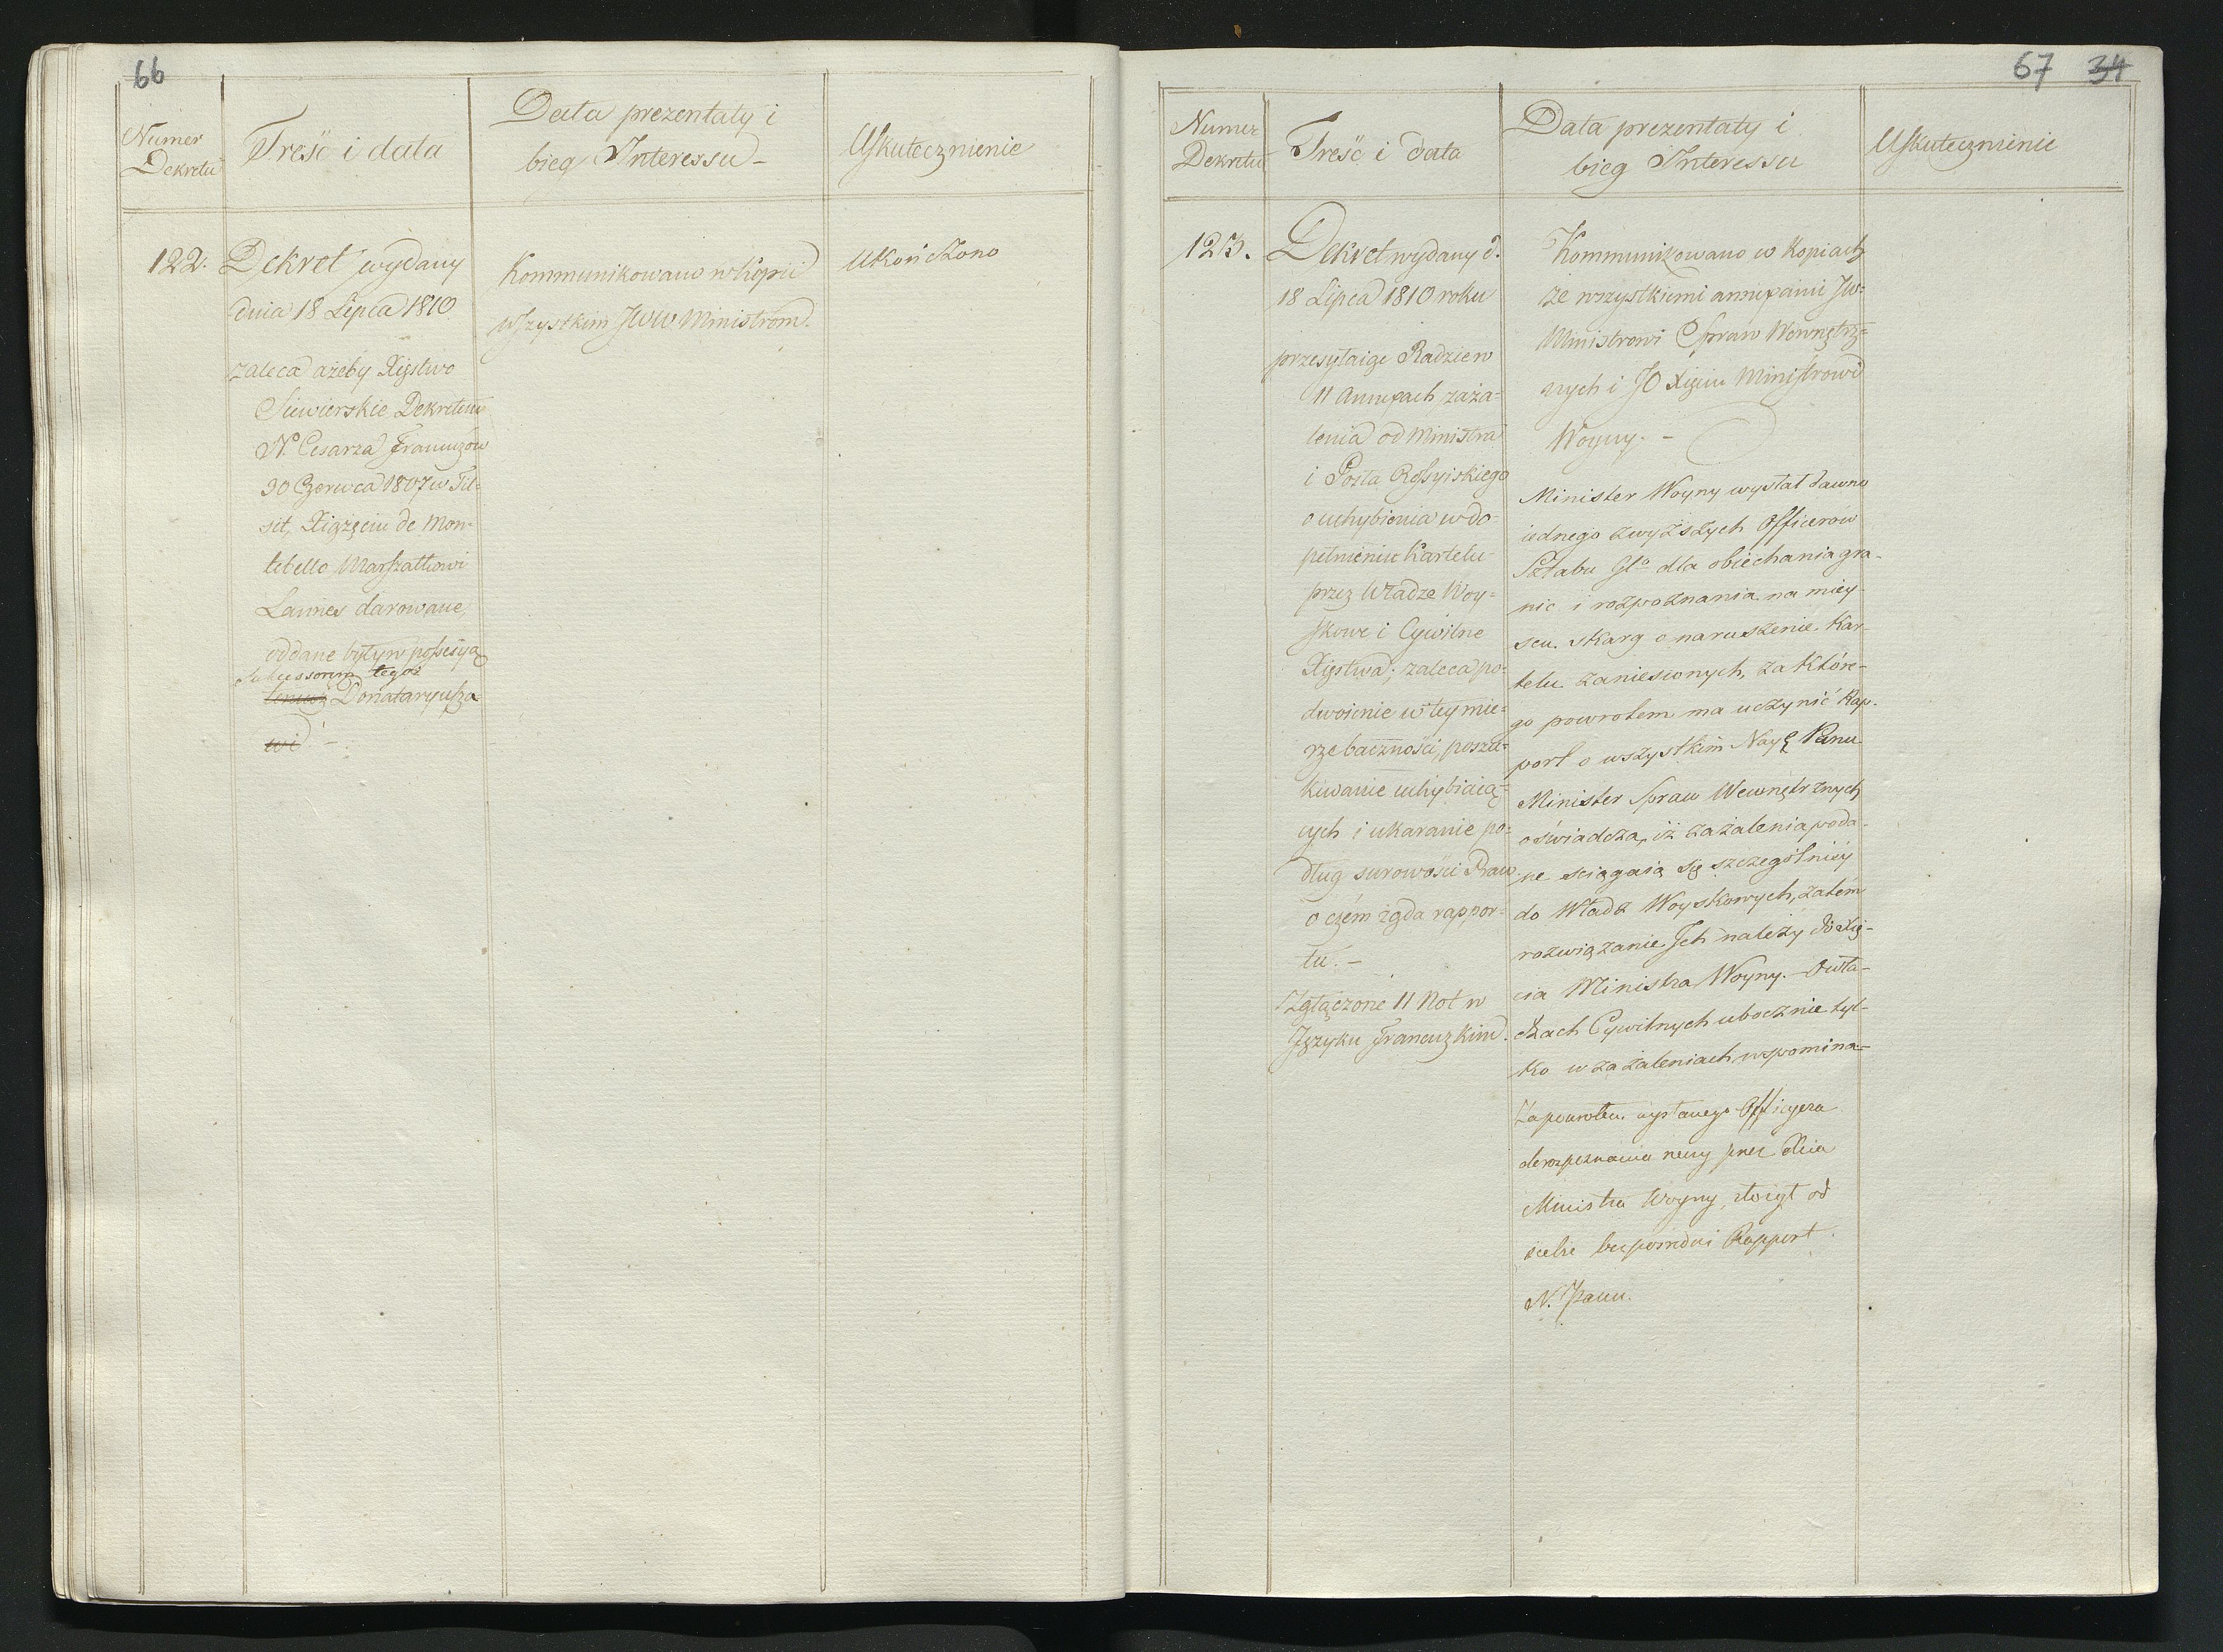 66
Numer
Dekretu
Treść i data
Data prezentaty i
bieg Interessu -
Uskutecznienie
122.
Dekret wydany
dnia 18 Lipca 1810
zaleca ażeby Xięstwo
Siewierskie Dekretem
N. Cesarza Francuzów
30 Czerwca 1807 w Til-
sit, Xiążęciu de Mon-
tebello Marszałkowi
Lannes darowane,
oddane były w possesyą
Sukcessorom tegoż
Donataryusza
wi. -
Kommunikowano w kopii
wszystkim JWW Ministrom.
Ukończono
67 34
Numer
Dekretu
Treść i data
Data prezentaty i
bieg Interessu
Uskutecznienie
123.
Dekret wydany d.
18 Lipca 1810 roku
przesyłaiąc Radzie w
11 annexach zaża-
lenia od Ministra
i Posła Rossyiskiego
o uchybienia w do-
pełnieniu Kartelu
przez Władze Woy-
skowe i Cywilne
Xięstwa; zaleca po-
dwoienie w tey mie-
rze baczności, poszu-
kiwanie uchybiaią-
cych i ukaranie po-
dług surowości Praw
o czém żąda rappor-
tu. -
Załączone 11 Not w
Języku Francuzkim.
Kommunikowano w Kopiach
ze wszystkiemi annexami JW-
Ministrowi Spraw Wewnętrz-
nych i JO Xięciu Ministrowi
Woyny. -
Minister Woyny wysłał dawno
iednego z wyższych Officerow
Sztabu Glo dla obiechania gra-
nic i rozpoznania na miey-
scu skarg o naruszenie Kar-
telu zaniesionych, za które-
go powrotem ma uczynić Rap-
port o wszystkim Nayę Panu
Minister Spraw Wewnętrznych
oświadcza, iż zażalenia poda-
ne sciągaią się szczególniéy
do Władz Woyskowych, zatém
rozwiązanie Ich należy do Xię-
cia Ministra Woyny. O wła-
dzach Cywilnych ubocznie tyl-
ko w zażaleniach wspomina-
Za powrotem wysłanego Officyera
do rozpoznania rzeczy przez Xcia
Ministra Woyny, złożył od
siebie bezpośredni Rapport
N. Panu.